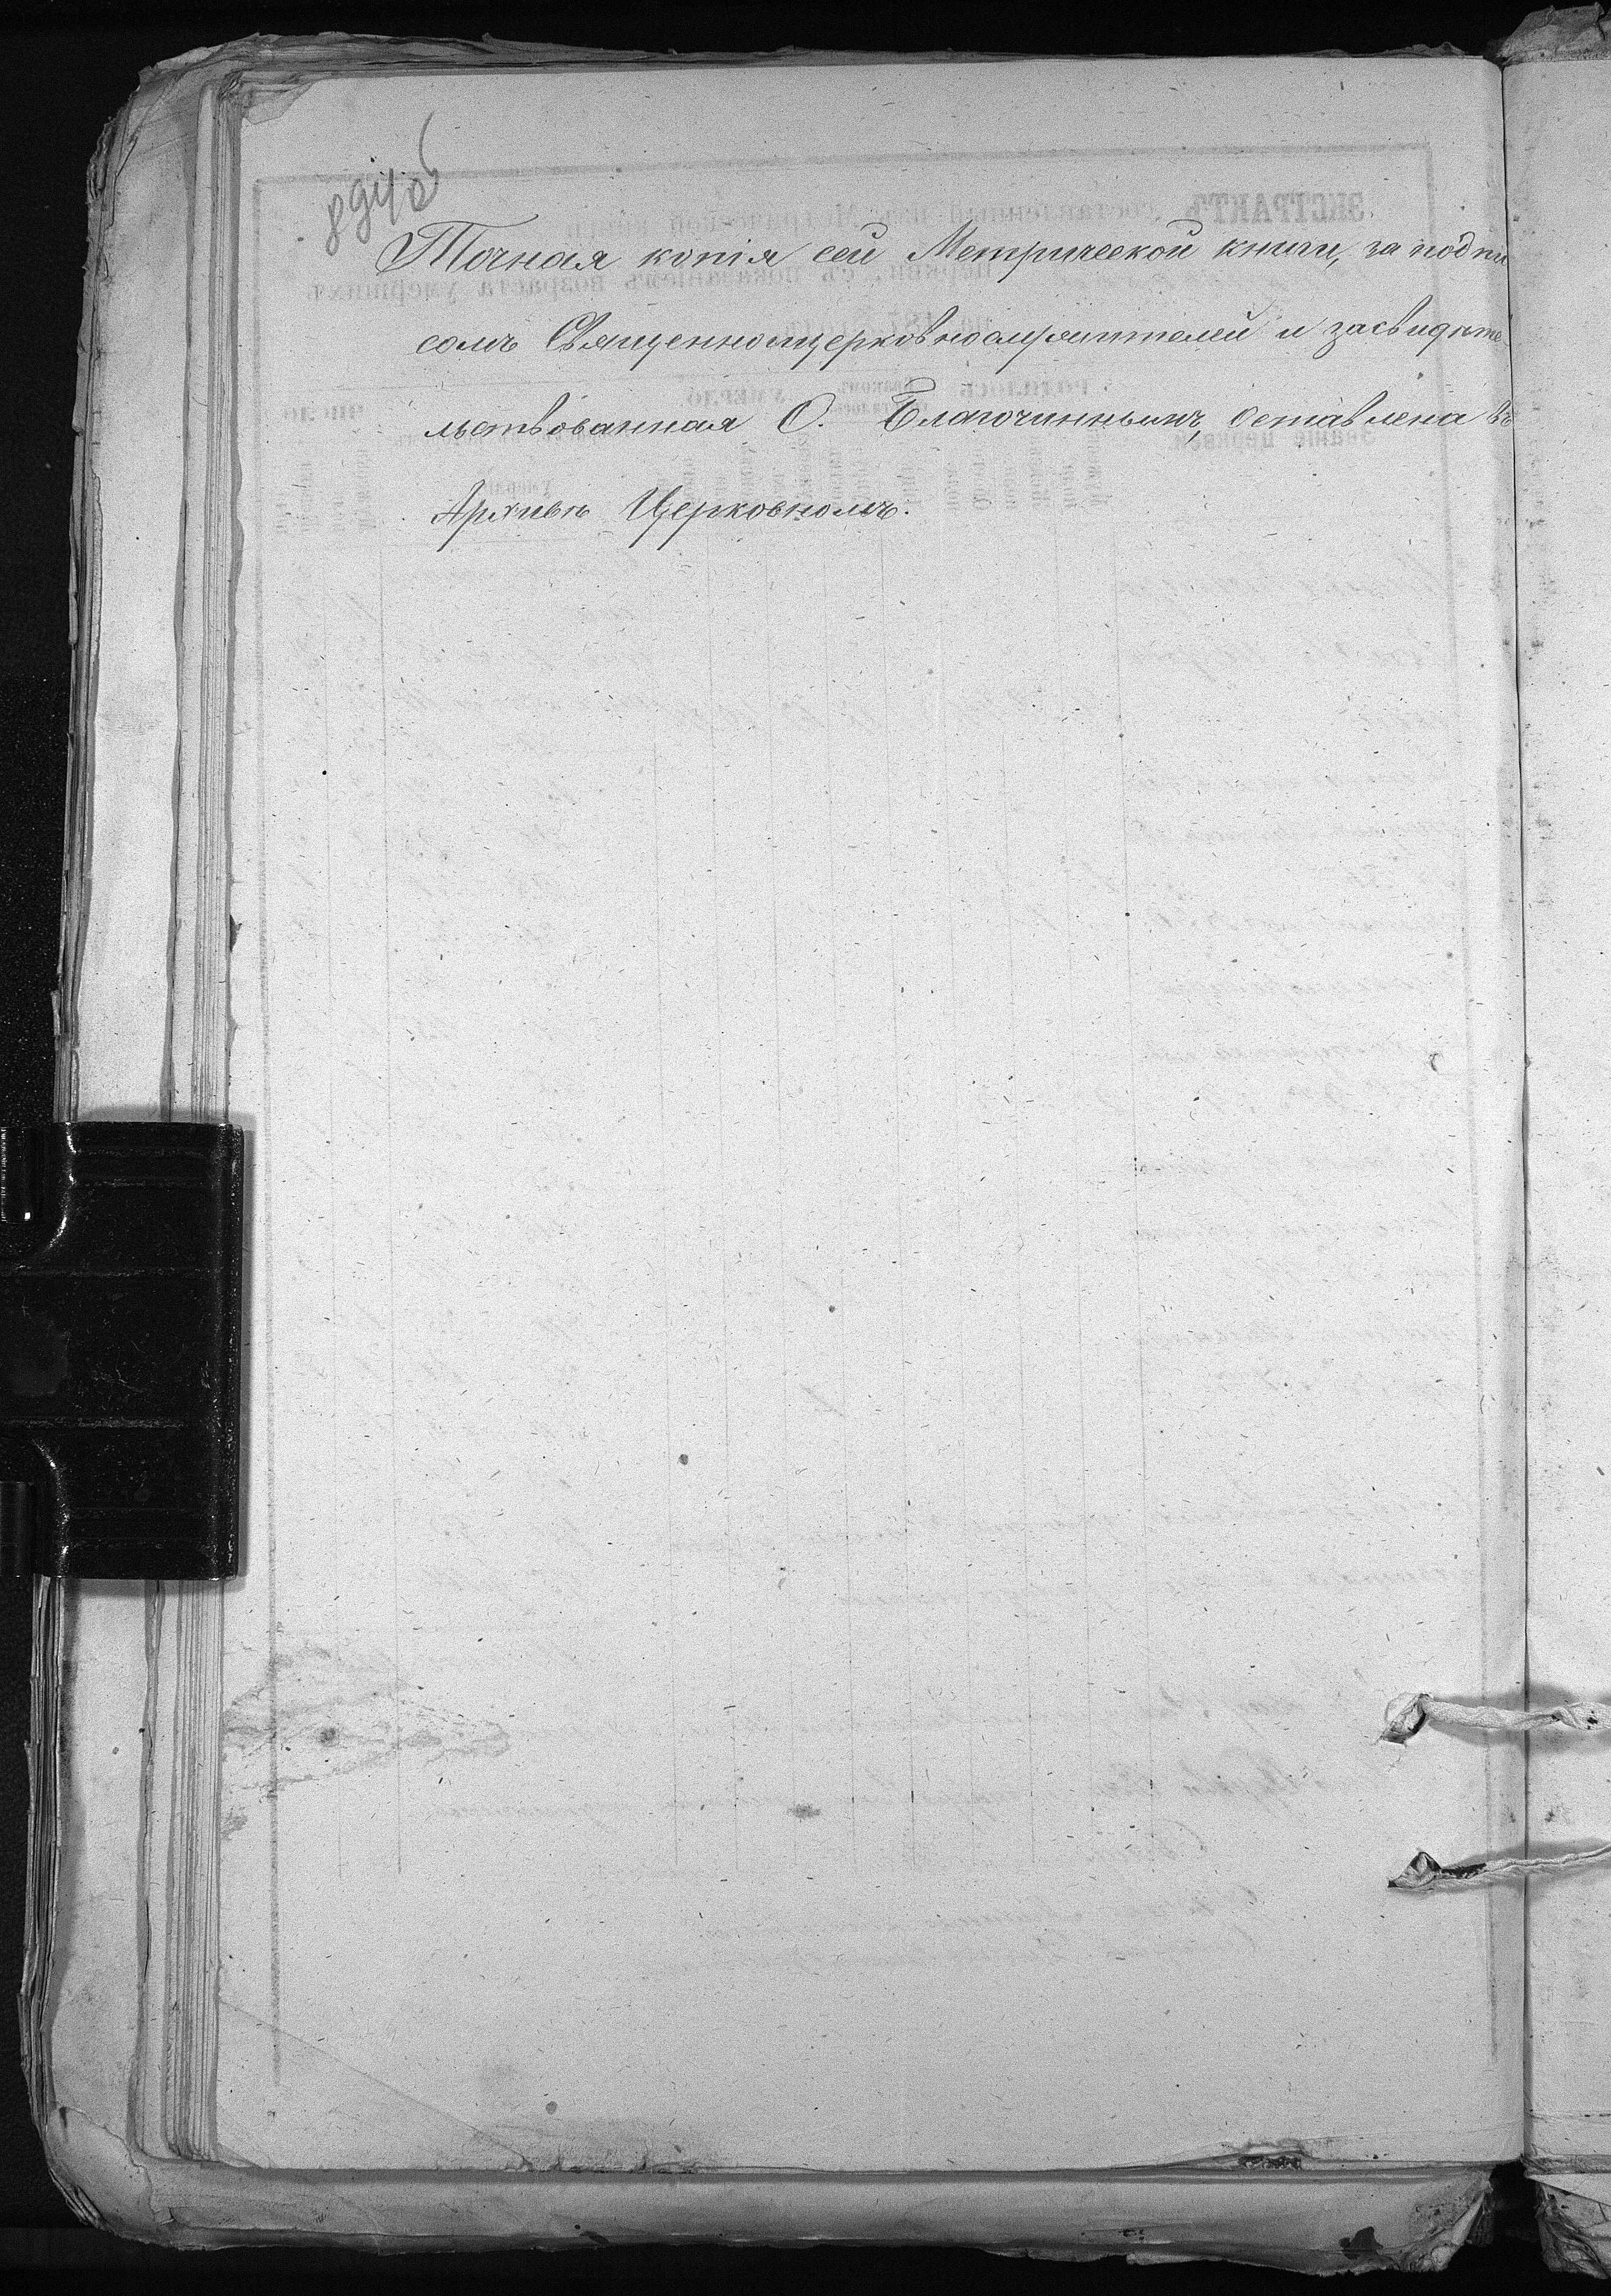 894об
Точная копія сей Метрической книги, за подпи
сомъ Священноцерковнослужителей и засвидѣте
льствованная О. Благочиннымъ, оставлена въ
Архивѣ Церковномъ.